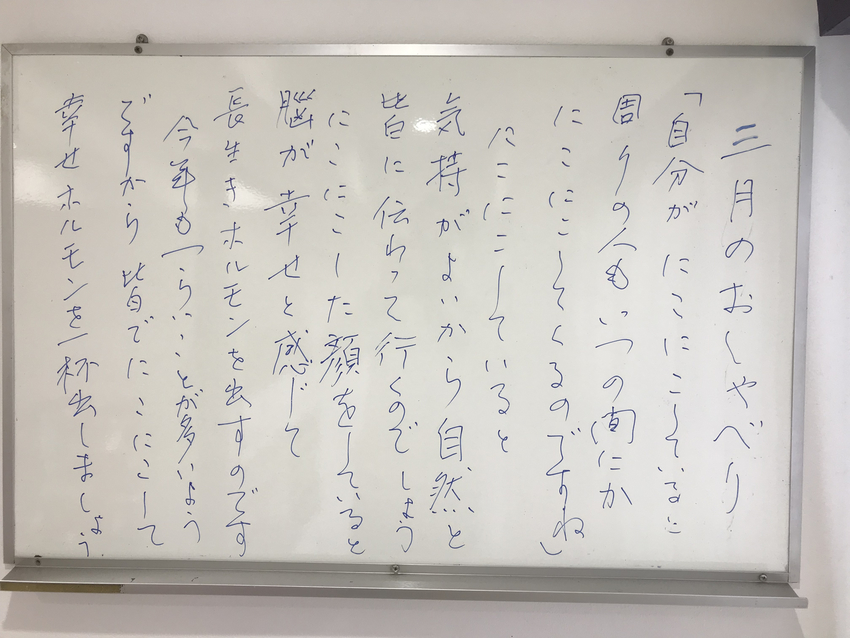 三月のおしゃべり
「自分が にこにこしていると
周りの人もいつの間にか
にこにこしてくるのですね」
にこにこしていると
気持がよいから自然と
皆に伝わって行くのでしょう
にこにこした顔をしていると
脳が幸せと感じて
長生きホルモンを出すのです
今年も つらいことが多いよう
ですから 皆でにこにこして
幸せホルモンを一杯出しましょう